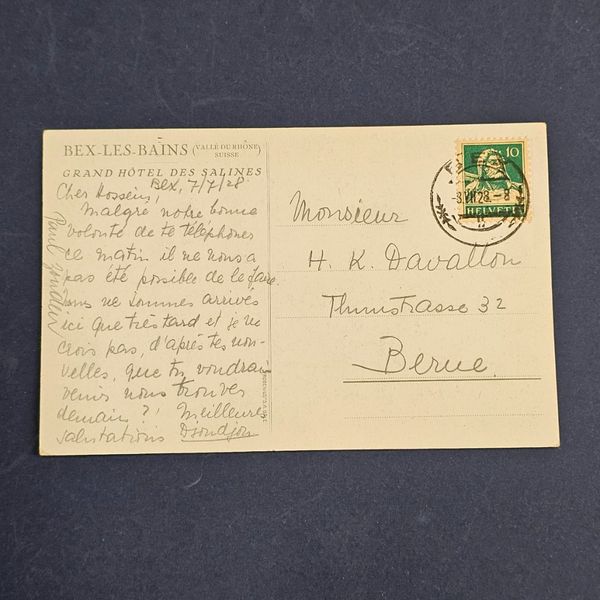 BEX-LES-BAINS (VALLÉE DU RHÔNE) SUISSE
GRAND HÔTEL DES SALINES
Bex, 7/7/28
Cher Hossein,
Malgré notre bonne
volonté de te téléphoner
ce matin il ne nous a
pas été possible de le faire.
nous ne sommes arrivés
ici que très tard et je ne
crois pas, d'après tes nou-
velles, que tu voudrais
venir nous trouver
demain? Meilleures
salutations Dsondjon
Paul
10
HELVETIA
-8.VII.28.-8
Monsieur
H. K. Davallon
Thunstrasse 32
Berne.